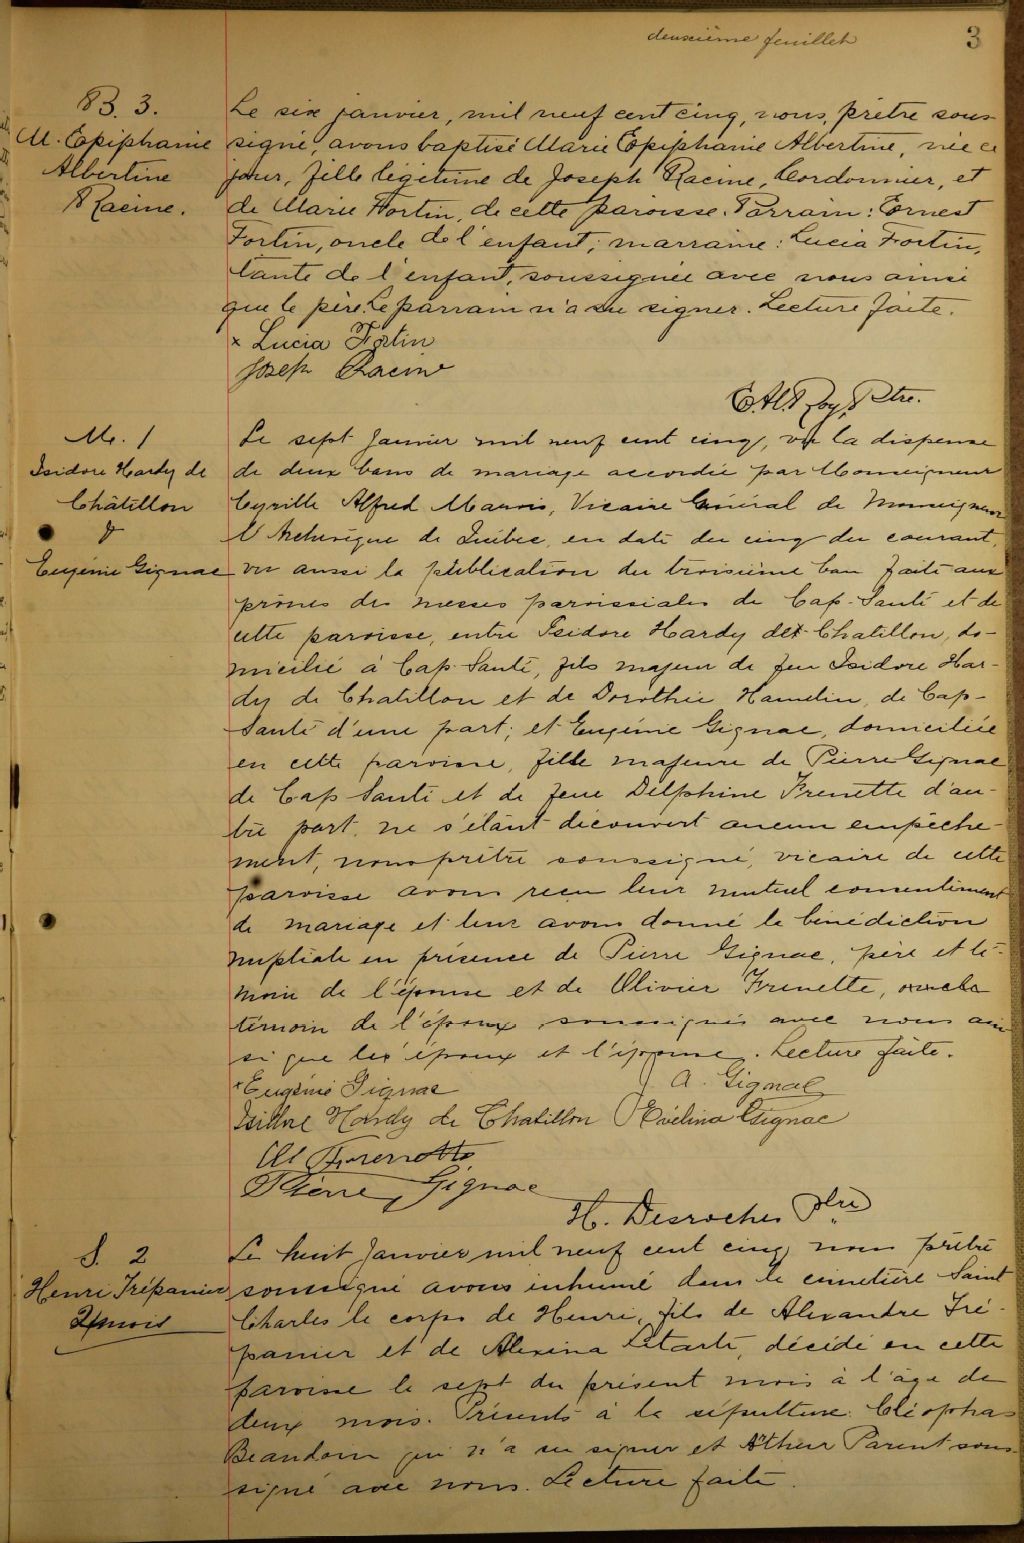 deuxième feuillet
3
B. 3.
M. Epiphanie
Albertine
Racine.
Le six janvier, mil neuf cent cinq, nous, prêtre sous-
signé, avons baptisé Marie Epiphanie Albertine, née ce
jour, fille légitime de Joseph Racine, Cordonnier, et
de Marie Fortin, de cette paroisse. Parrain: Ernest
Fortin, oncle de l'enfant; marraine: Lucia Fortin,
tante de l'enfant, soussignée avec nous ainsi
que le père. Le parrain n'a su signer. Lecture faite.
x Lucia Fortin
Joseph Racine
E. Al. Roy, Ptre.
M. 1
Isidore Hardy de
Châtillon
&
Eugénie Gignac
Le sept Janvier mil neuf cent cinq, vu la dispense
de deux bans de mariage accordée par Monseigneur
Cyrille Alfred Marois, Vicaire Général de Monseigneur
l'Archevêque de Québec, en date du cinq du courant,
vu aussi la publication du troisième ban faite aux
prônes des messes paroissiales de Cap-Santé et de
cette paroisse, entre Isidore Hardy de Chatillon, do-
micilié à Cap-Santé, fils majeur de feu Isidore Har-
dy de Chatillon et de Dorothée Hamelin, de Cap-
Santé d'une part; et Eugénie Gignac, domiciliée
en cette paroisse, fille majeure de Pierre Gignac
de Cap Santé et de feue Delphine Frenette d'au-
tre part, ne s'étant découvert aucun empêche-
ment, nous prêtre soussigné, vicaire de cette
paroisse avons reçu leur mutuel consentiment
de mariage et leur avons donné la bénédiction
nuptiale en présence de Pierre Gignac, père et té-
moin de l'épouse et de Olivier Frenette, oncle
témoin de l'époux soussignés avec nous ain
si que les époux et l'épouse. Lecture faite.
x Eugénie Gignac
J. A. Gignac
Isidore Hardy de Chatillon
Evélina Gignac
Ol Frenette
Pierre Gignac
H. Desroches Ptre
S. 2
Henri Trépanier
2 mois
Le huit Janvier mil neuf cent cinq nous prêtre
soussigné avons inhumé dans le cimetière Saint
Charles le corps de Henri, fils de Alexandre Tré-
panier et de Alexina Letarte, décédé en cette
paroisse le sept du présent mois à l'âge de
deux mois. Présents à la sépulture: Cléophas
Beaudoin qui n'a su signer et Arthur Parent sous-
signé avec nous. Lecture faite.